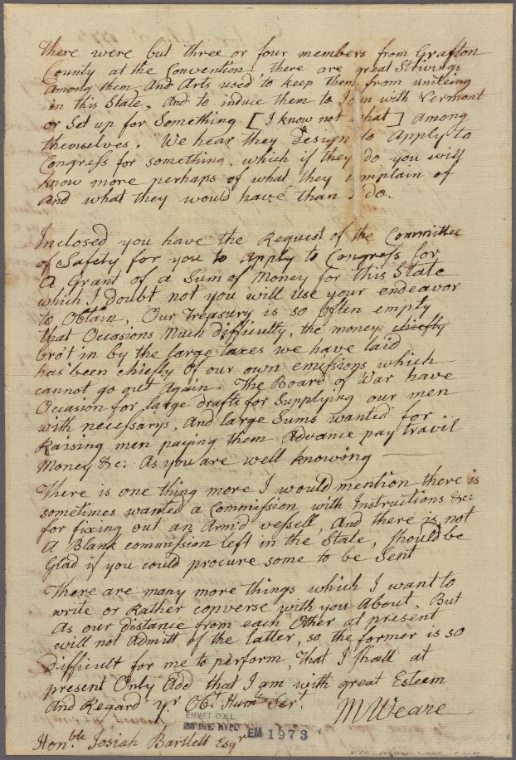 There were but three or four members from Grafton
County at the Convention: there are great Strivings
among them And Arts used to keep them from uniteing
in this State, And to induce them to Join with Vermont
or Set up for Something [I know not what] among
themselves. We hear they Design to Apply to
Congress for something, which if they do you will
know more perhaps of what they complain of
and what they would have than I do.
Inclosed you have the Request of the Committee
of Safety for you to Apply to Congress for
A Grant of a Sum of Money for this State
which I Doubt not you will use your endeavor
to Obtain, Our Treasury is so Often empty
that Occasions Much difficulty, the money chiefly
bro't in by the large taxes we have laid
has been chiefly of our own emissions which
cannot go out again. The Board of War have
Occasion for large drafts for Supplying our men
with necessarys, And large Sums wanted for
Raising men paying them Advance pay travil
Money &c: As you are well knowing
There is one thing more I would mention there is
sometimes wanted a Commission with Instructions &c:
for fixing out an Arm'd vessell, And there is not
A Blank commission left in the State, Should be
Glad if you could procure some to be Sent
There are many more things which I want to
write or Rather converse with you About. But
As our distance from each Other at present
will not Admitt of the latter, so the former is so
difficult for me to perform, That I shall at
present Only Add that I am with great Esteem
And Regard Yr Obt Humle Ser.
M Weare
EMMET COLL.
EM 1973
Honble Josiah Bartlett Esqr